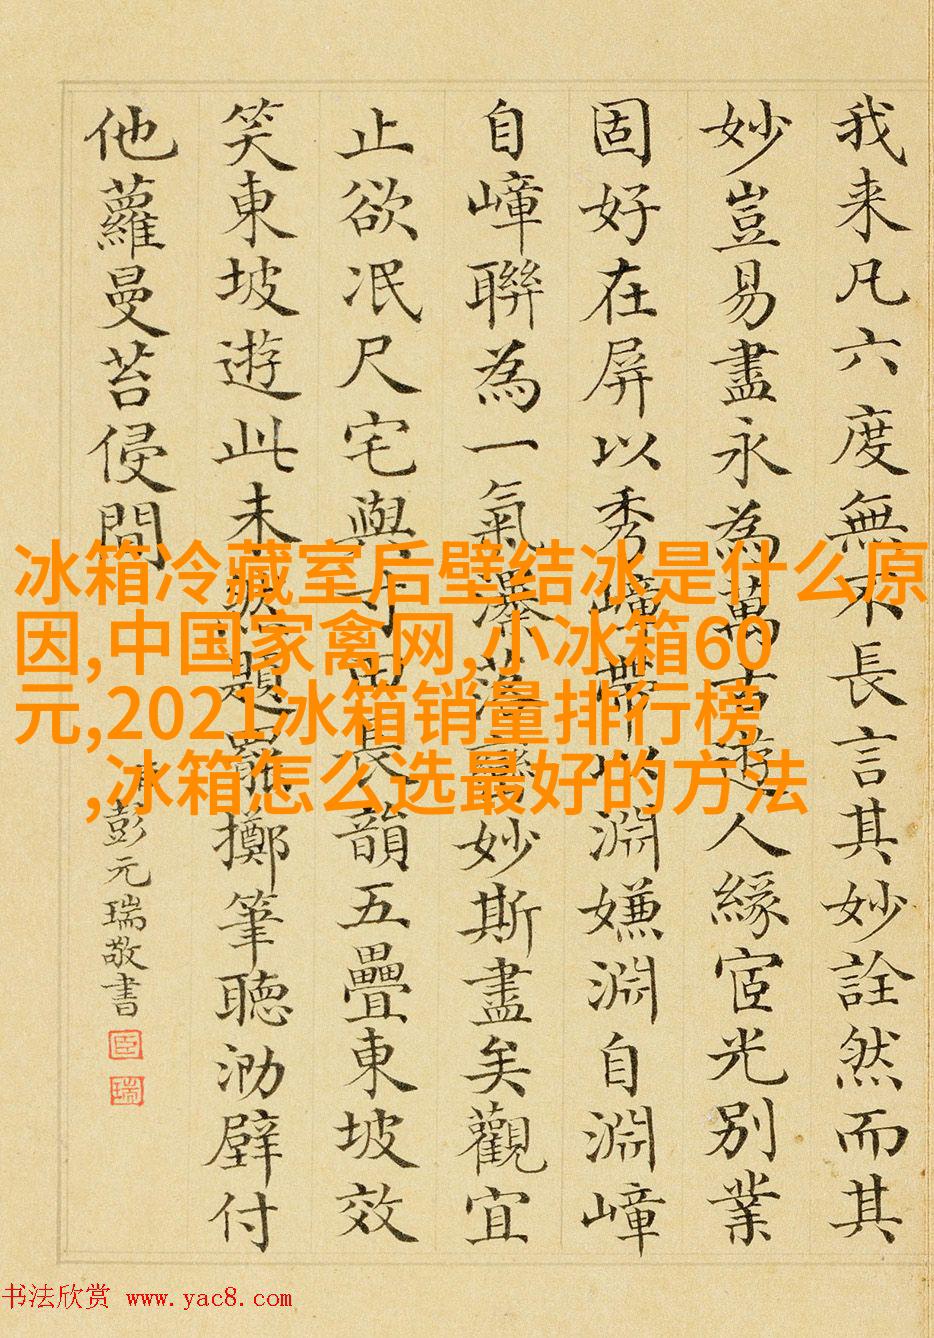 我来凡六度無不長言其妙詮然而其
妙豈易盡永為萬古遊人緣宧光別業
固好在屏以秀嶂帶以淵嫌淵自淵嶂
自嶂聯為一氣瀑落妙斯盡矣觀宜
止欲泯尺宅與寸田長韻五疊東坡效
笑東坡遊此未題罷擲筆聽泐壁付
他蘿蔓苔侵間
彭元瑞敬書
臣
瑞
冰箱冷藏室后壁结冰是什么原
因,中国家禽网,小冰箱60
元,2021冰箱销量排行榜
,冰箱怎么选最好的方法
书法欣赏 www.yac8.com